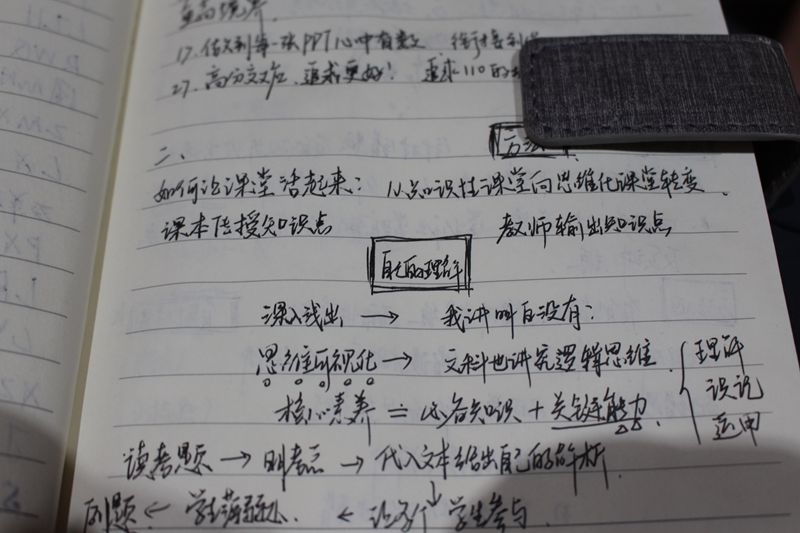 至高境界
17. 做到每一张PPT心中有数 衔接
27. 高分文后、追求更好! 追求110的
二、
方法
如何让课堂活起来: 1. 知识性课堂向思维化课堂转变
课本传授知识点 教师输出知识点
自己的理解
深入浅出 → 我讲明白没有:
思维可视化 → 文科也讲究逻辑思维
核心素养 = 必备知识 + 关键能力. { 理解 识记 运用
读考题 → 明考点 → 代入文本给出自己的解析.
例题 ← 学生薄弱处. ← 学生参与.